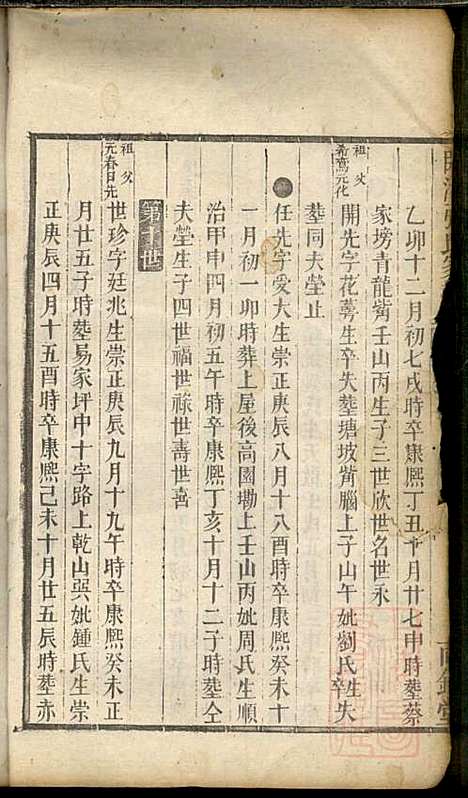 乙卯十二月初七戌時卒康熙丁丑十月廿七申時塟蔡
家塝青龍觜壬山丙生子三世欣世名世永
祖 父
希鸞元化
開先字花萼生卒失塟塘坡觜腦上子山午妣劉氏卒失
塟同夫塋止
任先字愛大生崇正庚辰八月十八酉時卒康熙癸未十
一月初一卯時葬上屋後高園墈上壬山丙妣周氏生順
治甲申四月初五午時卒康熙丁亥十月十二子時塟仝
夫塋生子四世福世祿世壽世喜
第十世
祖 父
元春日先
世珍字廷兆生崇正庚辰九月十九午時卒康熙癸未正
月廿五子時塟易家坪申十字路上乾山巽妣鍾氏生崇
正庚辰四月十五酉時卒康熙己未十月廿五辰時塟亦